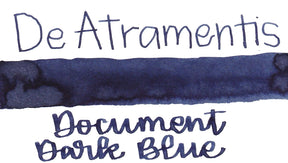 De Atramentis
Document
Dark Blue